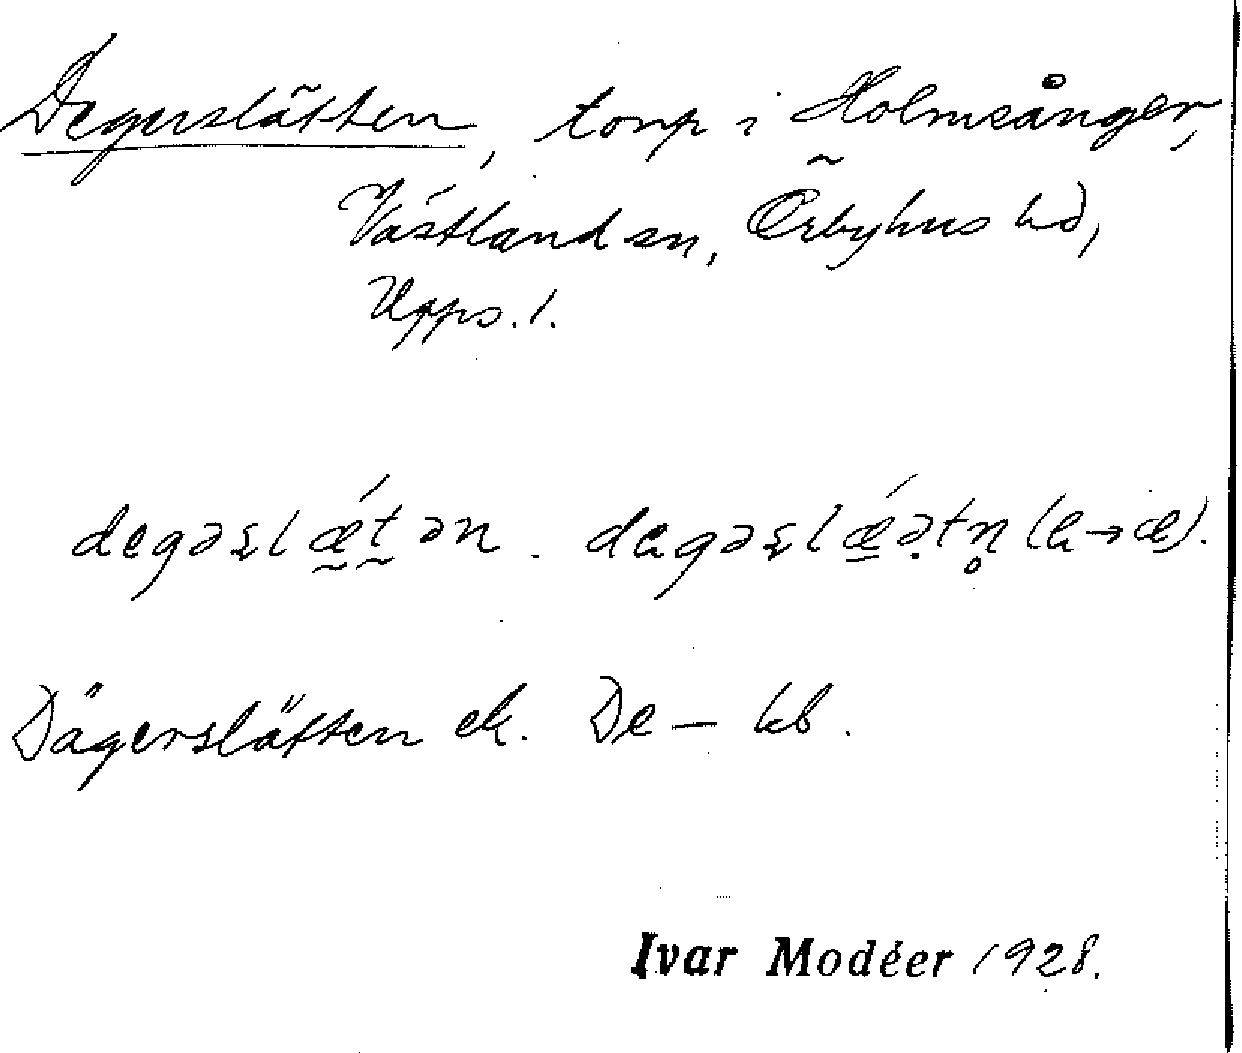 Degerslätten, torp i Holmsånger,
Västland sn, Örbyhus hd,
Upps. l.
degəʂlǽtən. degəʂlǽətn̥ (e→æ).
Dägerslätten ek. De— hb.
Ivar Modéer 1928.